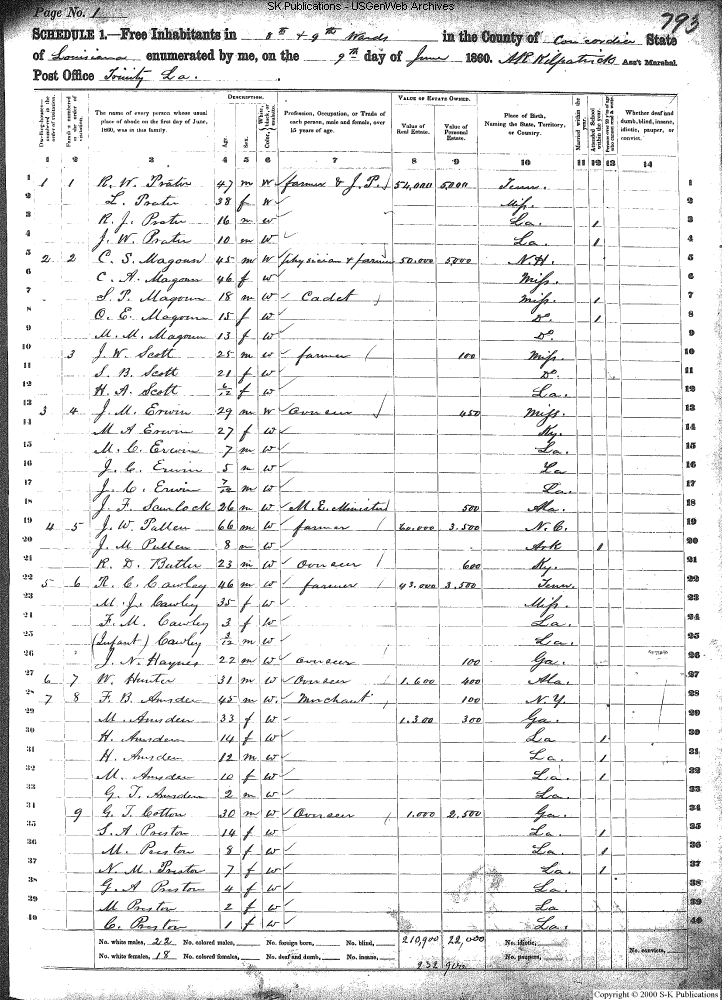 SK Publications - USGenWeb Archives
Page No. 1
793
SCHEDULE 1.—Free Inhabitants in 8th & 9th Wards in the County of Concordia State
of Louisiana enumerated by me, on the 9th day of June 1860. Kilpatrick Ass't Marshal.
Post Office Trinity La.
DESCRIPTION. VALUE OF ESTATE OWNED.
The name of every person whose usual place of abode on the first day of June, 1860, was in this family.
Age. Sex. Color,
Profession, Occupation, or Trade of each person, male and female, over 15 years of age.
Value of Real Estate. Value of Personal Estate.
Place of Birth, Naming the State, Territory, or Country.
Married within the year. Attended School within the year.
Whether deaf and dumb, blind, insane, idiotic, pauper, or convict.
1 2 3 4 5 6 7 8 9 10 11 12 13 14
1 1 1 R. W. Prater 47 m W farmer & J. P. 54,000 5000 Tenn. 1
2 L. Prater 38 f W Miss. 2
3 R. J. Prater 16 m w La. 1 3
4 J. W. Prater 10 m w La. 1 4
5 2 2 C. S. Magoun 45 m W physician & farmer 50.000 5000 N.H. 5
6 C. A. Magoun 46 f w Miss. 6
7 S. P. Magoun 18 m w Cadet Miss. 1 7
8 O. E. Magoun 15 f w Do. 1 8
9 M. M. Magoun 13 f w Do. 9
10 3 J. W. Scott 25 m w farmer 100 Miss. 10
11 S. B. Scott 21 f w Do. 11
12 H. A. Scott 6/12 f w La. 12
13 3 4 J. M. Erwin 29 m W Overseer 450 Miss. 13
14 M A Erwin 27 f w Ky. 14
15 M. C. Erwin 7 m w La. 15
16 J. C. Erwin 5 m w La 16
17 J. C. Erwin 7/12 m w La. 17
18 J. F. Scurlock 26 m W M. E. Minister 500 Ala. 18
19 4 5 J. W. Pullen 66 m W farmer 60.000 3.500 N.C. 19
20 J. M Pullen 8 m w Ark 1 20
21 R. D. Butler 23 m w Overseer 600 Ky. 21
22 5 6 R. C. Cawley 46 m w farmer 43.000 3.500 Tenn. 22
23 M. J. Cawley 35 f w Miss. 23
24 F. M. Cawley 3 f w La. 24
25 (Infant) Cawley 3/12 m w La. 25
26 J. N. Haynes 22 m w Overseer 100 Ga. 26
27 6 7 W. Hunter 31 m w Overseer 1.600 400 Ala. 27
28 7 8 F. B. Amsden 45 m w. Merchant 100 N.Y. 28
29 M. Amsden 33 f w 1.300 300 Ga. 29
30 H. Amsden 14 f w La 1 30
31 H. Amsden 12 m w La. 1 31
32 M. Amsden 10 f w La. 1 32
33 G. T. Amsden 2 m w La. 33
34 9 G. T. Cotton 30 m W Overseer 1.000 2.500 Ga. 34
35 S. A Preston 14 f w La. 1 35
36 M. Preston 8 f w La. 1 36
37 N. M. Preston 7 f w La. 1 37
38 G. A Preston 4 f w La. 38
39 M Preston 2 f w La 39
40 C. Preston 1 f w La. 40
No. white males, 22 No. colored males, No. foreign born, No. blind, 210,900 22,000 No. idiotic,
No. white females, 18 No. colored females, No. deaf and dumb, No. insane, No. paupers, No. convicts,
232 900
Copyright © 2000 S-K Publications